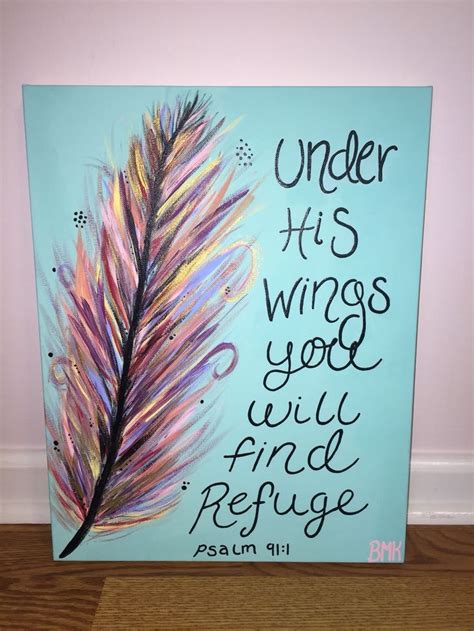 Under
His
wings
you
will
find
Refuge
Psalm 91:1
BMK